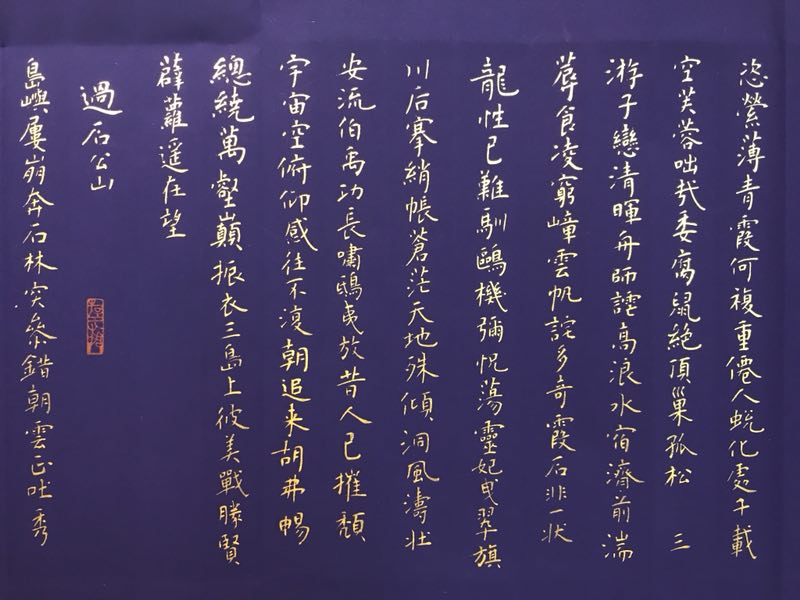 恣縈薄青霞何複重僊人蛻化處千載
空芙蓉咄哉委腐鼠絶頂巢孤松 三
游子戀清暉舟師諲高浪水宿濟前湍
蓐食凌窮嶂雲帆詫多奇霞石非一状
龍性已難馴鷗機彌怳蕩靈妃曳翠旗
川后搴綃帳蒼茫天地殊傾洞風濤壮
安流伯禹功長嘯鴟夷放昔人已摧頹
宇宙空俯仰感往不復朝追来胡弗暢
總繞萬壑巔振衣三島上彼美戰勝賢
薜蘿遥在望
過石公山
島嶼屢崩奔石林突參錯朝雲正吐秀